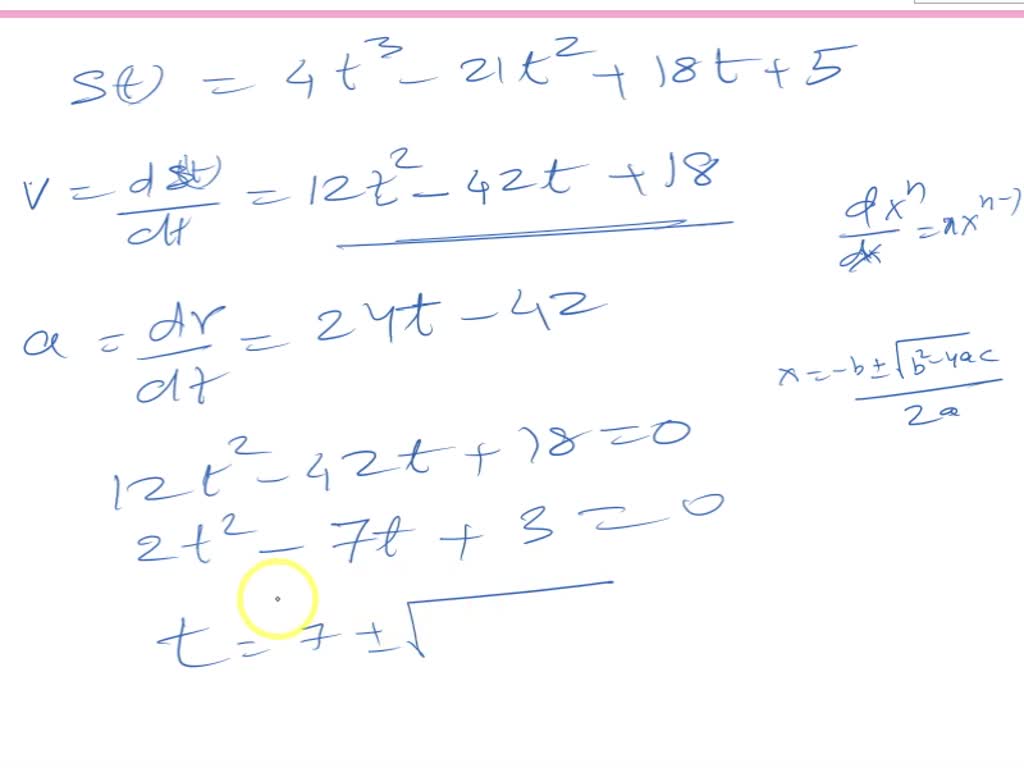 S(t) = 4t³ - 21t² + 18t + 5
V = dS(t)/dt = 12t² - 42t + 18
dxⁿ/dx = nxⁿ⁻¹
a = dv/dt = 24t - 42
x = -b ± √(b² - 4ac) / 2a
12t² - 42t + 18 = 0
2t² - 7t + 3 = 0
t = 7 ± √